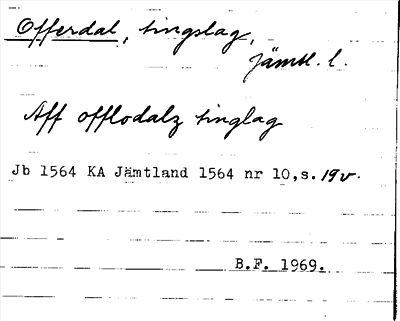 Offerdal, tingslag,
Jämtl. l.
Aff offlodalz tinglag
Jb 1564 KA Jämtland 1564 nr 10,s. 19v.
B.F. 1969.